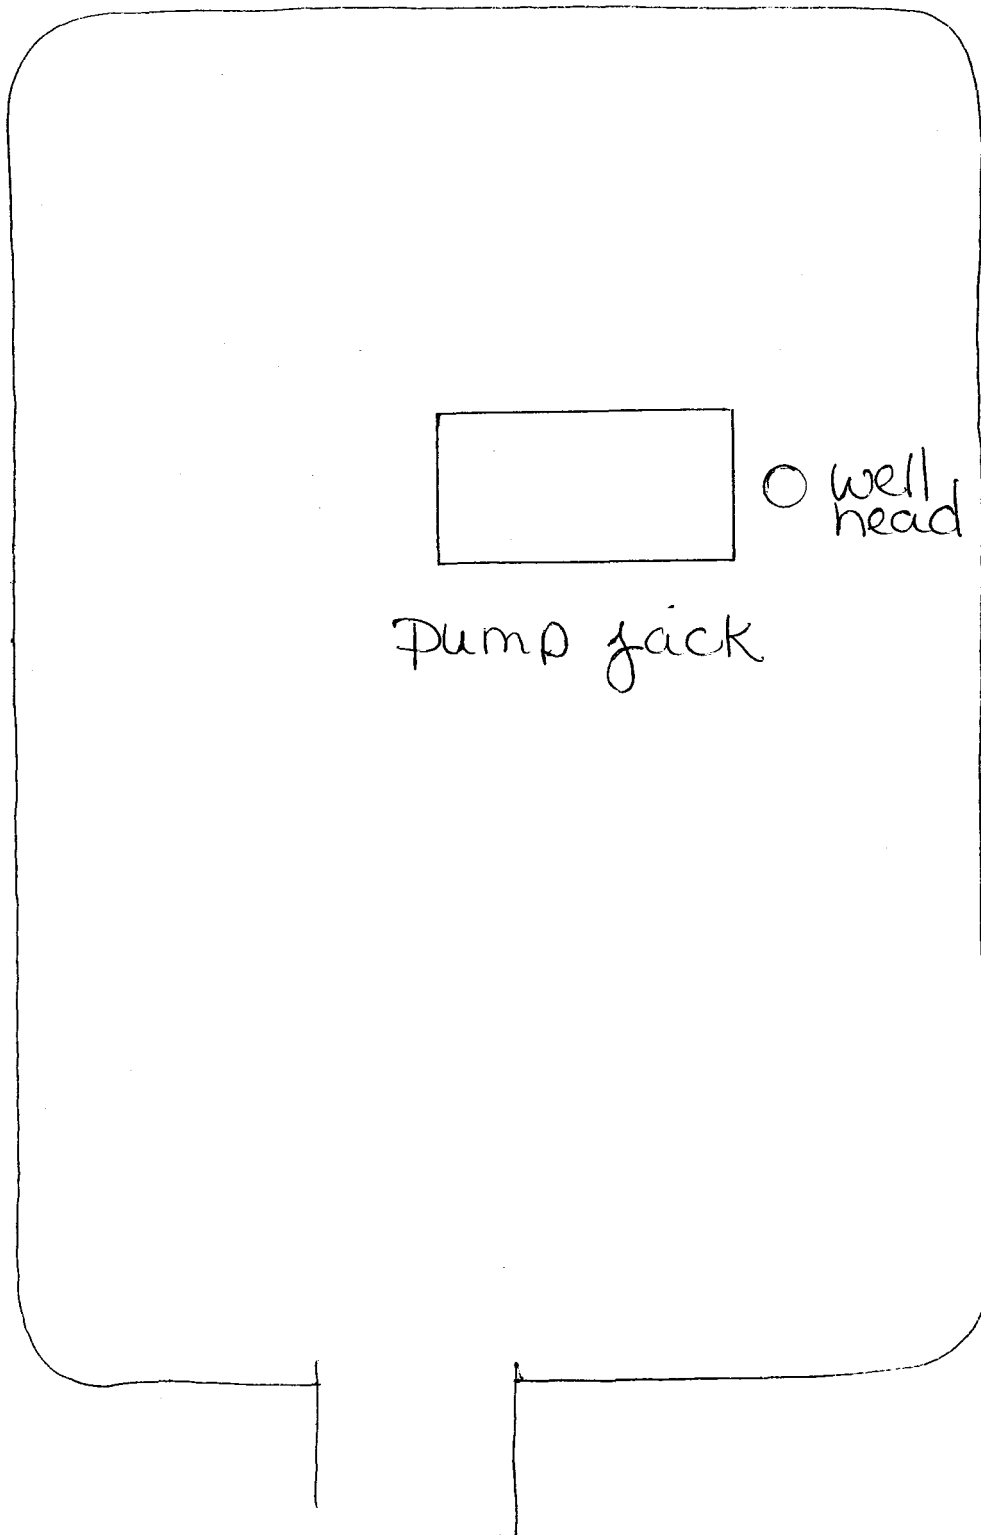 well
head
Pump jack